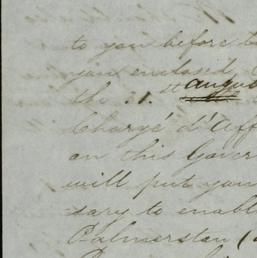 to you before
you enclosed
the 31.st Augus
Chargé d'Aff
on this Gover
will put you
sary to enabl
Palmerston (